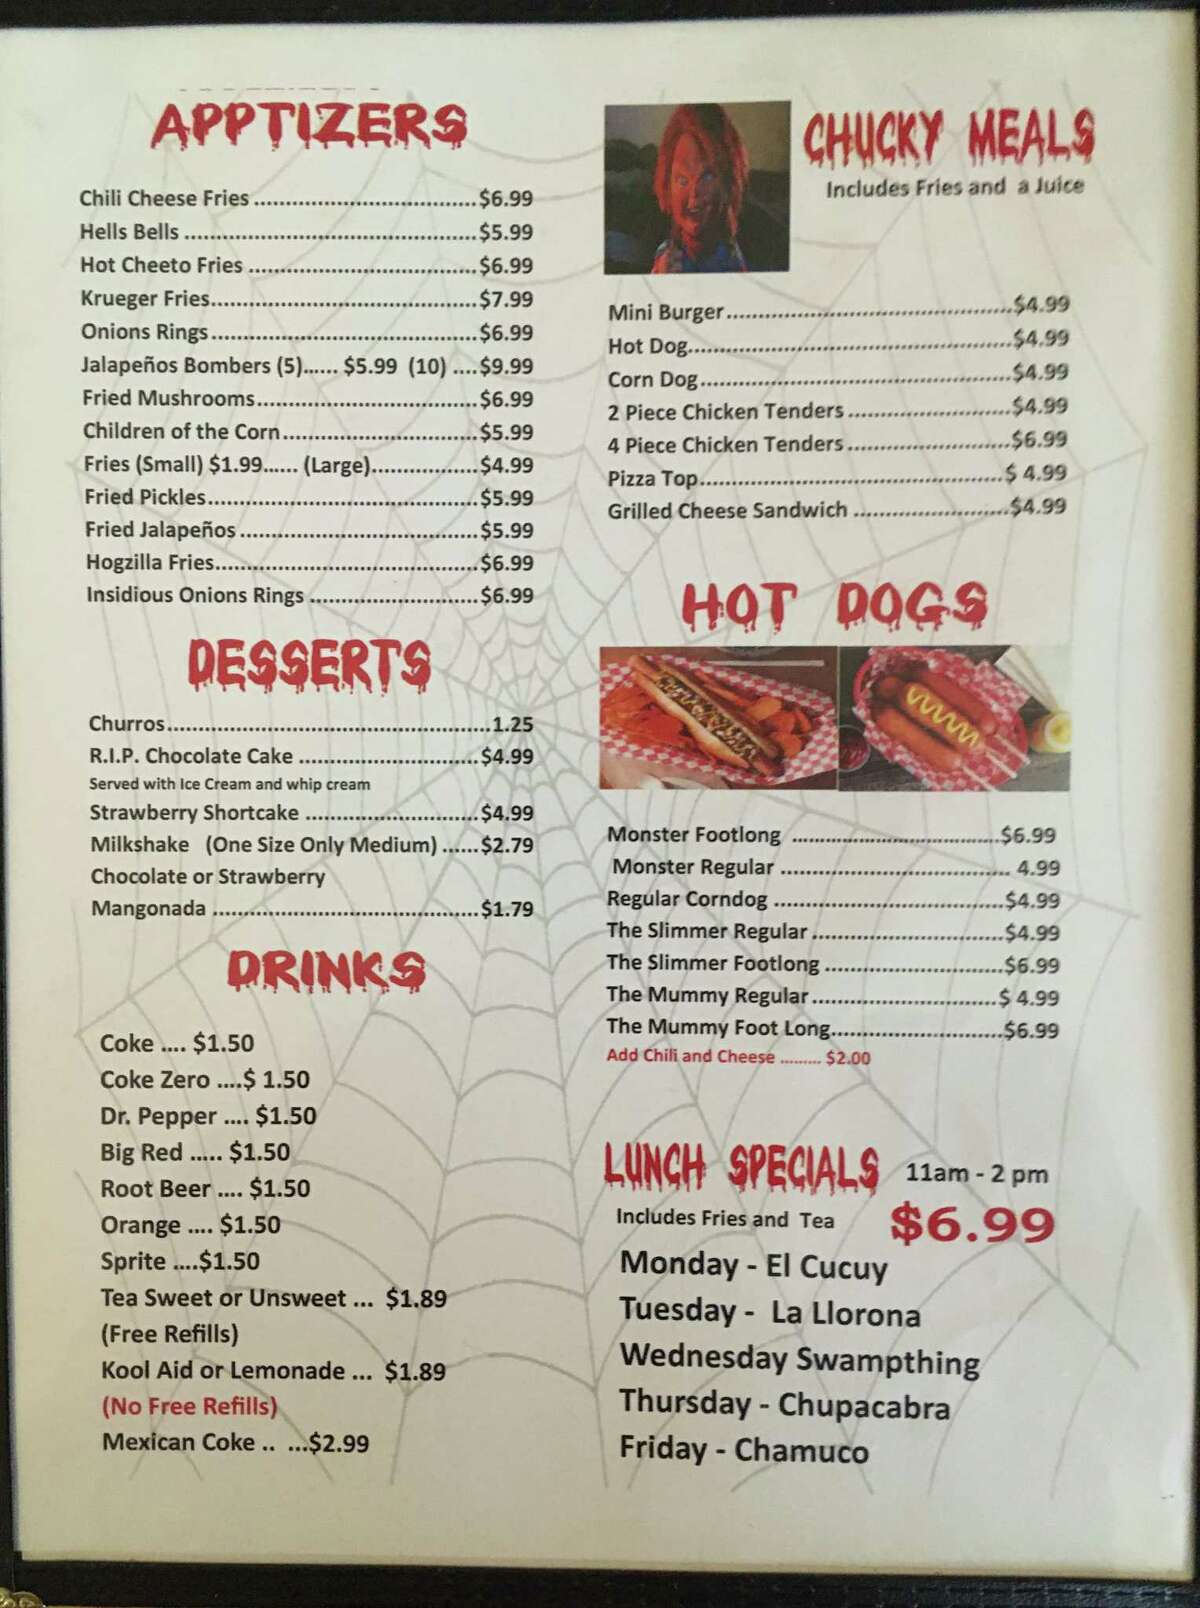 APPTIZERS
Chili Cheese Fries ..................................$6.99
Hells Bells .............................................$5.99
Hot Cheeto Fries ...................................$6.99
Krueger Fries.........................................$7.99
Onions Rings.........................................$6.99
Jalapeños Bombers (5)...... $5.99 (10) ....$9.99
Fried Mushrooms..................................$6.99
Children of the Corn..............................$5.99
Fries (Small) $1.99...... (Large).................$4.99
Fried Pickles..........................................$5.99
Fried Jalapeños .....................................$5.99
Hogzilla Fries.........................................$6.99
Insidious Onions Rings ..........................$6.99
DESSERTS
Churros..................................................1.25
R.I.P. Chocolate Cake ............................$4.99
Served with Ice Cream and whip cream
Strawberry Shortcake ...........................$4.99
Milkshake (One Size Only Medium) ......$2.79
Chocolate or Strawberry
Mangonada .........................................$1.79
DRINKS
Coke .... $1.50
Coke Zero ....$ 1.50
Dr. Pepper .... $1.50
Big Red ..... $1.50
Root Beer .... $1.50
Orange .... $1.50
Sprite ....$1.50
Tea Sweet or Unsweet ... $1.89
(Free Refills)
Kool Aid or Lemonade ... $1.89
(No Free Refills)
Mexican Coke .. ...$2.99
CHUCKY MEALS
Includes Fries and a Juice
Mini Burger............................................$4.99
Hot Dog..................................................$4.99
Corn Dog................................................$4.99
2 Piece Chicken Tenders .........................$4.99
4 Piece Chicken Tenders.........................$6.99
Pizza Top...............................................$ 4.99
Grilled Cheese Sandwich ........................$4.99
HOT DOGS
Monster Footlong ................................$6.99
Monster Regular ................................... 4.99
Regular Corndog ...................................$4.99
The Slimmer Regular .............................$4.99
The Slimmer Footlong ...........................$6.99
The Mummy Regular............................$ 4.99
The Mummy Foot Long..........................$6.99
Add Chili and Cheese ......... $2.00
LUNCH SPECIALS 11am - 2 pm
Includes Fries and Tea $6.99
Monday - El Cucuy
Tuesday - La Llorona
Wednesday Swampthing
Thursday - Chupacabra
Friday - Chamuco